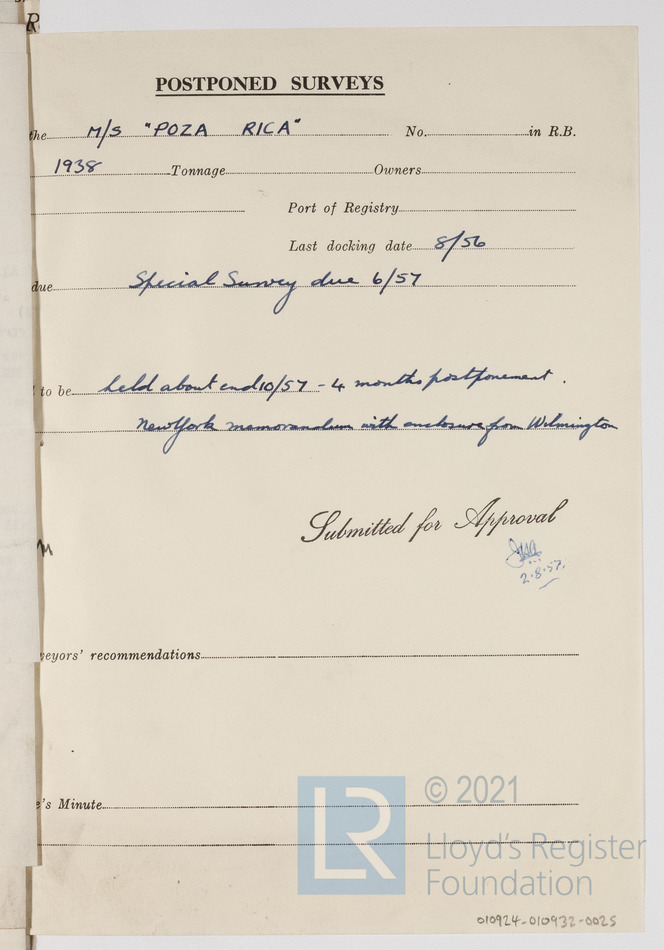 POSTPONED SURVEYS
the M/S "POZA RICA" No. in R.B.
1938 Tonnage Owners
Port of Registry
Last docking date 8/56
due Special Survey due 6/57
to be held about end 10/57 - 4 months postponement.
New York memorandum with enclosure from Wilmington
Submitted for Approval
2.8.57.
veyors' recommendations
e's Minute
LR
© 2021
Lloyd's Register
Foundation
010924-010932-0025